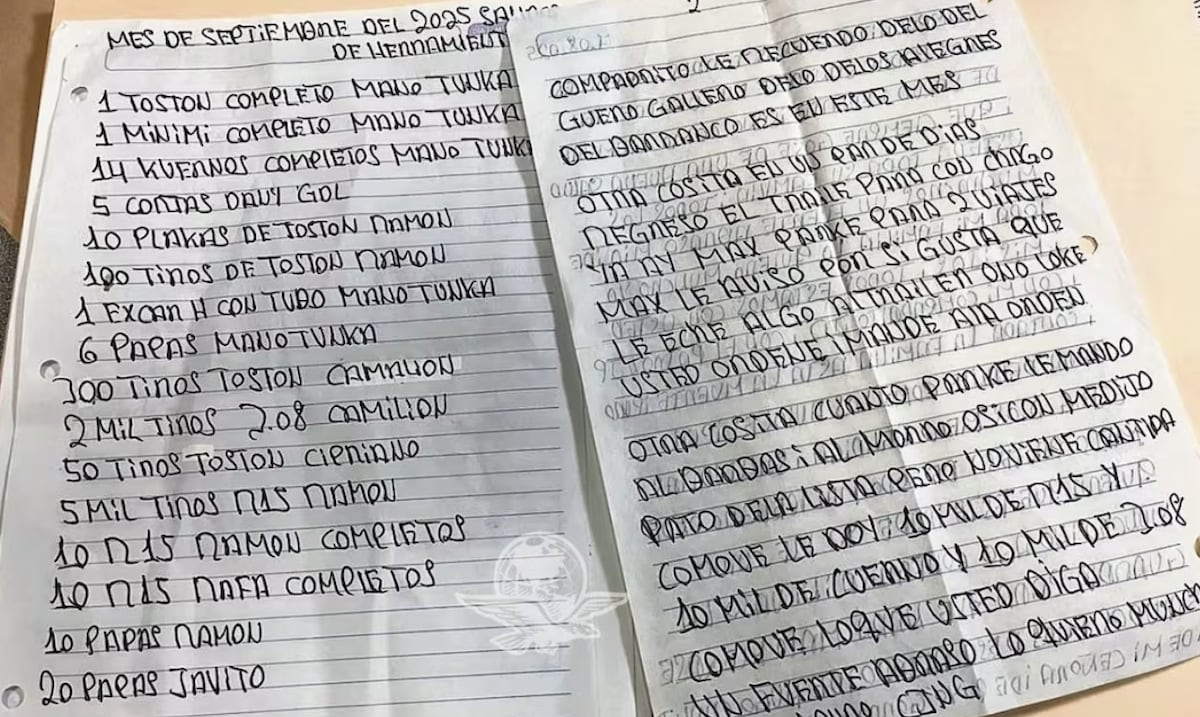 MES DE SEPTIEMBRE DEL 2025
DE HERRAMIENT
1 TOSTON COMPLETO MANO TUNKA
1 MINIMI COMPLETO MANO TUNKA
14 KUERNOS COMPLETOS MANO TUNK
5 CORTAS DAVY GOL
10 PLAKAS DE TOSTON RAMON
100 TIROS DE TOSTON RAMON
1 EXCAR H CON TUBO MANO TUNKA
6 PAPAS MANO TUNKA
300 TIROS TOSTON CAMALION
2 MIL TIROS 7.08 CAMILION
50 TIROS TOSTON CIPRIANO
5 MIL TIROS R15 RAMON
10 R15 RAMON COMPLETOS
10 R15 RAFA COMPLETOS
10 PAPAS RAMON
20 PAPAS JAVITO
2
COMPADRITO LE RECUERDO DELO DEL
GUERO GALLERO DELO DELOS ALEGRES
DEL BARRANCO ES EN ESTE MES
OTRA COSITA EN UN PAR DE DIAS
REGRESO EL TRAILE PARA CON CHAGO
YA AY MAX PARKE PARA 2 VIAJES
MAX LE AVISO POR SI GUSTA QUE
LE ECHE ALGO AL TRAILE N ORO LOKE
USTED ORDENE I MANDE A LA ORDEN
OTRA COSITA CUANTO PARKE LE MANDO
AL BARBAS I AL MORRO OSICON ME DIJTO
PATO DELA LISTA PERO NO VIENE CANTIDA
COMOVE LE DOY 10 MIL DE R15 Y
10 MIL DE CUERNO Y 10 MIL DE 7.08
COMOVE LOQUE USTED DIGA
UN FUERTE ABRASO LO QUIERO MUCH
CJNG